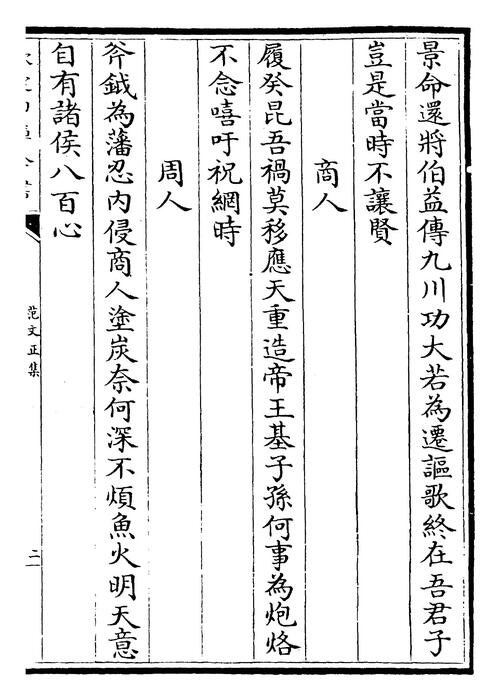 景命還將伯益傳九川功大若為遷謳歌終在吾君子
豈是當時不讓賢
商人
履癸昆吾禍莫移應天重造帝王基子孫何事為炮烙
不念嘻吁祝網時
周人
斧鉞為藩忍内侵商人塗炭奈何深不煩魚火明天意
自有諸侯八百心
范文正集
二